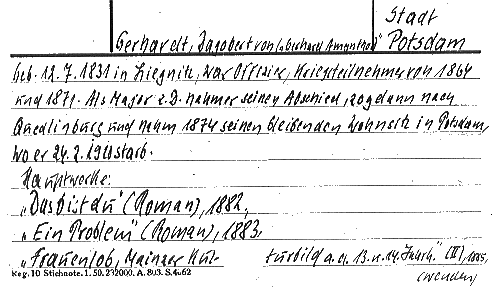 Stadt
Gerhardt, Dagobert von (Gerhard Amyntor)" Potsdam
Geb. 12.7.1831 in Liegnitz, war Offizier, Kriegsteilnehmer von 1864
und 1871. Als Major z.D. nahm er seinen Abschied, zog dann nach
Quedlinburg und nahm 1874 seinen bleibenden Wohnsitz in Potsdam,
wo er 24.2.1910 starb.
Hauptwerke:
"Das bist du" (Roman), 1882,
"Ein Problem" (Roman), 1883.
"Frauenlob, Mainzer Kul-
turbild a.d. 13. u. 14. Jahrh." (II), 1885,
(wenden)
Reg. 10 Stichnote. 1. 50. 232000. A. 803. S. 4062